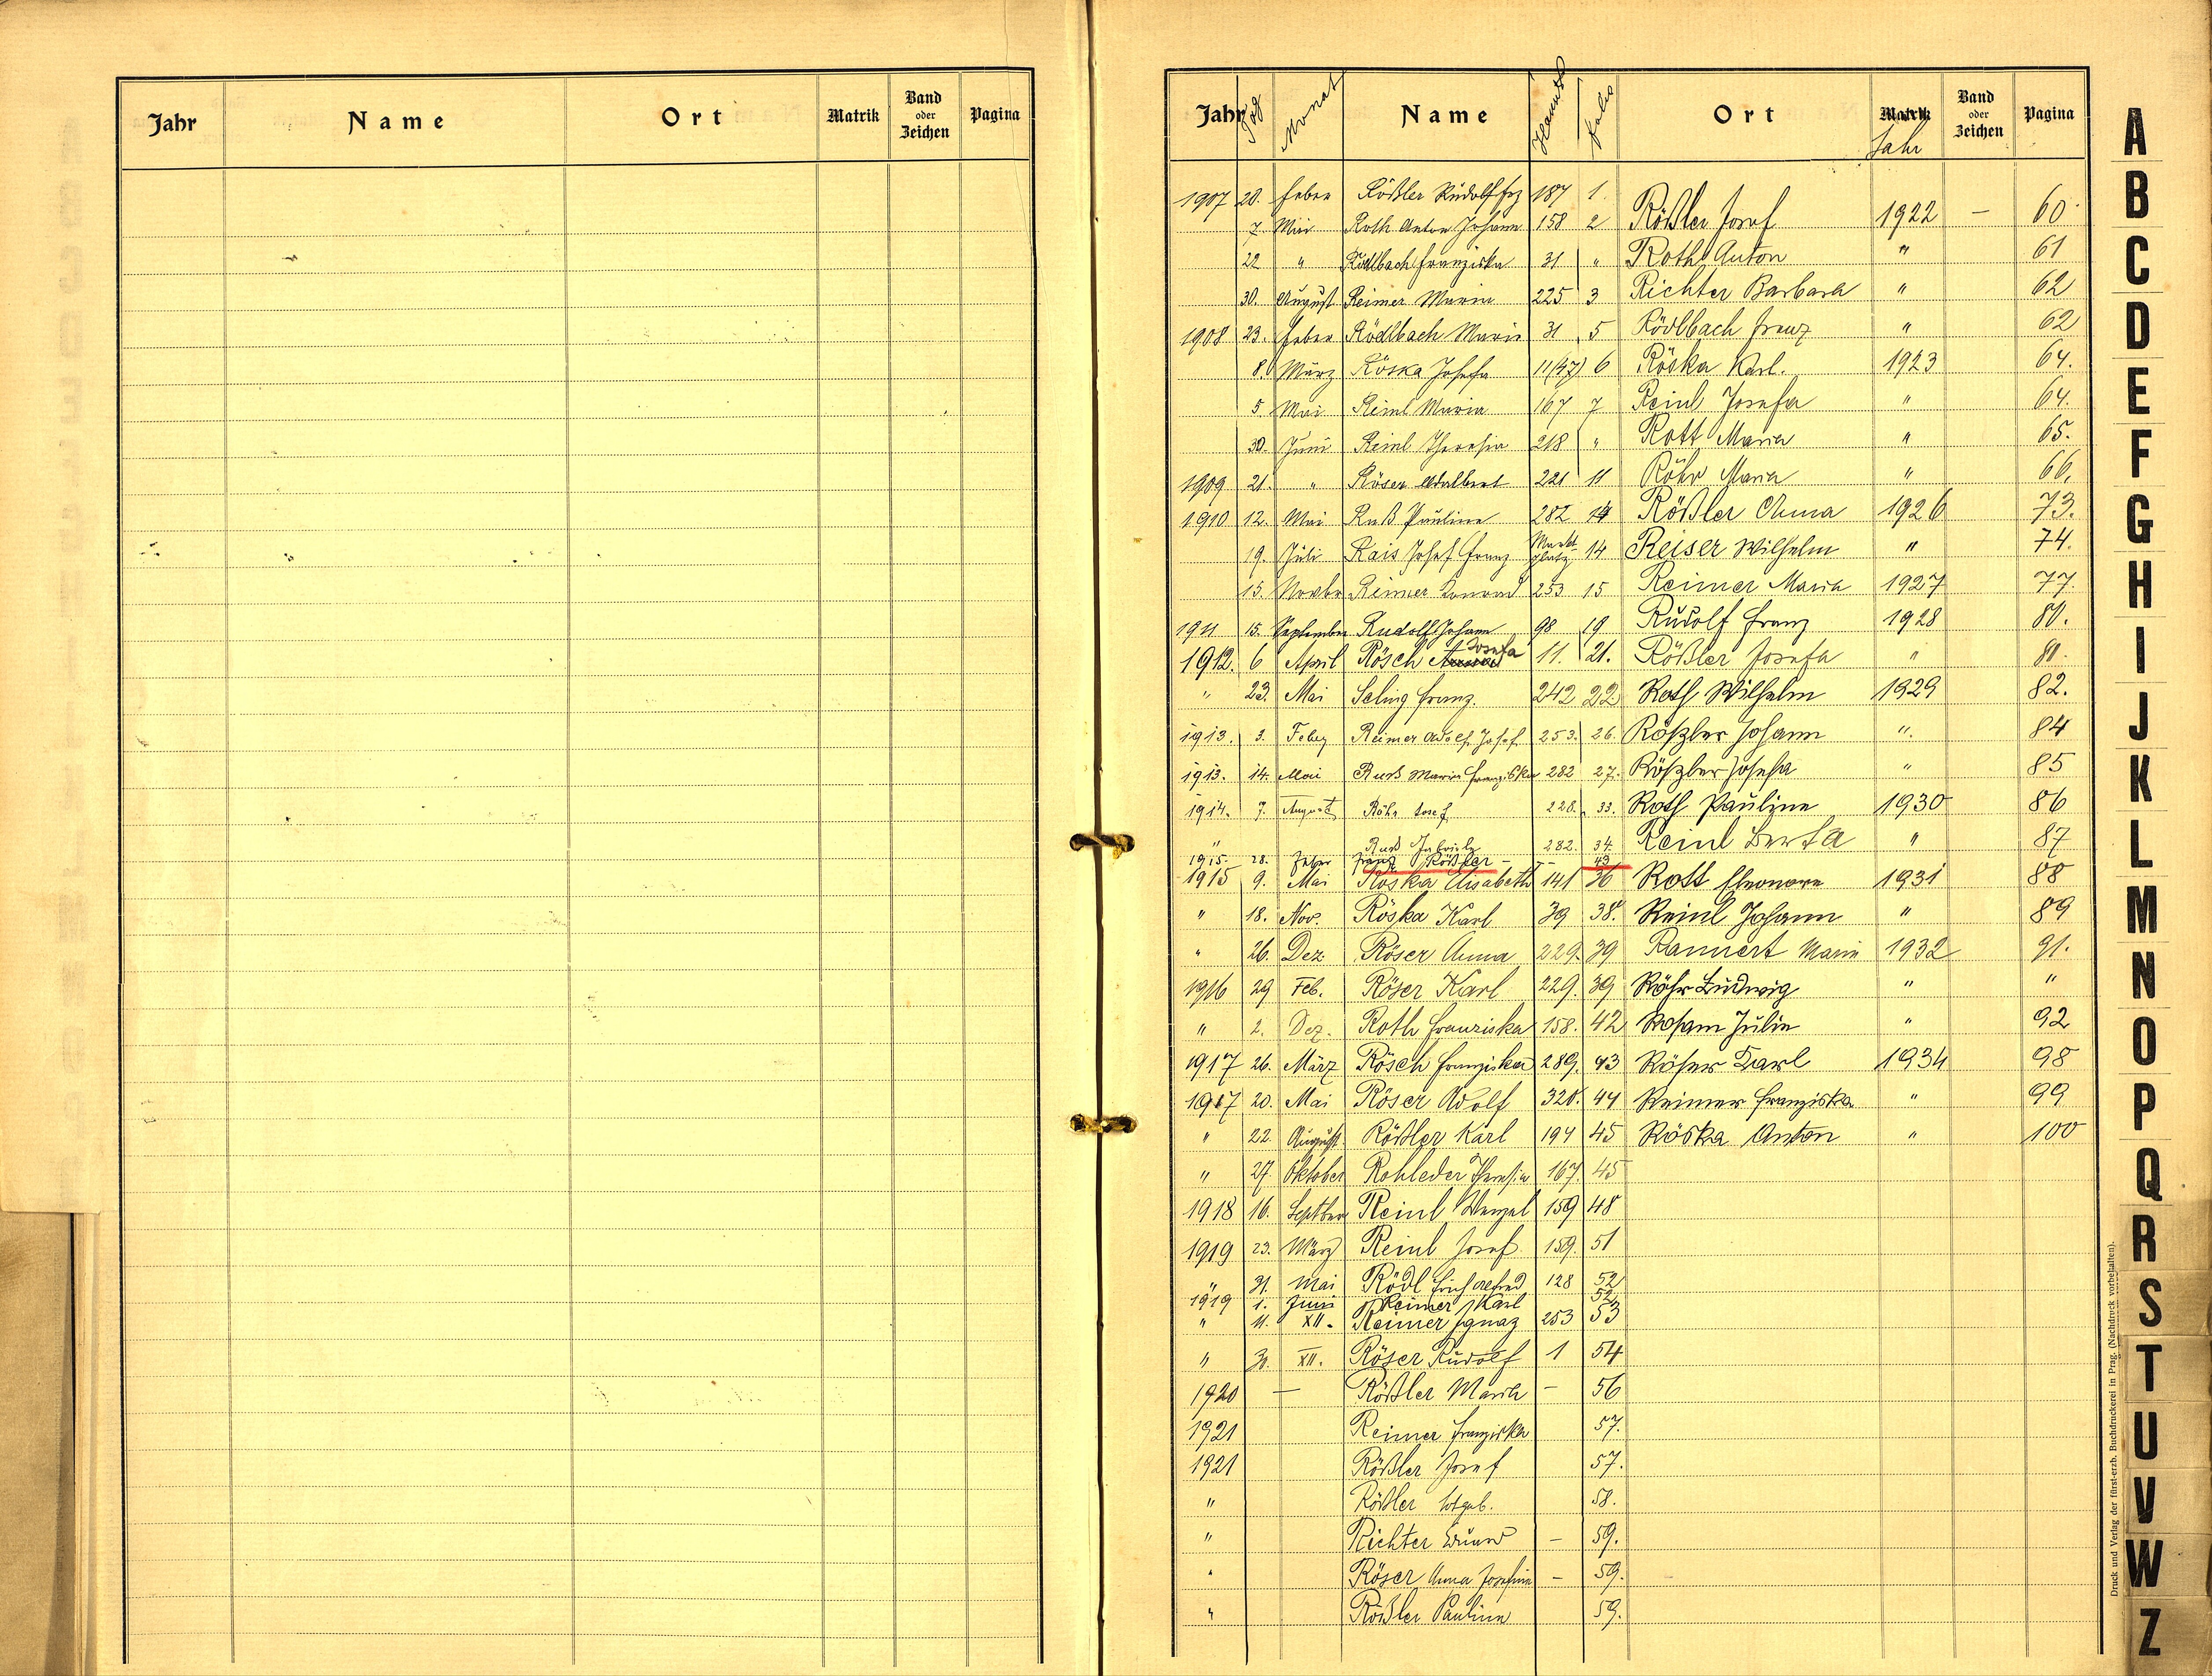 Jahr Name Ort Matrik Band oder Zeichen Pagina
Jahr Tag Monat Name Hausnr Folio Ort Matrik Jahr Band oder Zeichen Pagina
1907 20. Feber Rößler Rudolf Frz 187 1.
7. Mai Roth Anton Johann 158 2 Rößler Josef 1922 — 60
22 " Rödlbach Franziska 31 " Roth Anton " 61
30. August Reimer Maria 225 3 Richter Barbara " 62
1908 23. Feber Rödlbach Maria 31 5 Rödlbach Franz " 62
8. März Röska Josefa 11(47) 6 Röska Karl. 1923 64.
5. Mai Reinl Maria 167 7 Reinl Josefa " 64.
30. Juni Reinl Theresia 218 " Rott Maria " 65.
1909 21. " Röser Adalbert 221 11 Röhr Maria " 66.
1910 12. Mai Ruß Pauline 282 14 Rößler Anna 1926 73.
19. Juli Rais Josef Franz Marktplatz 14 Reiser Wilhelm " 74.
15. Novbr Reimer Konrad 253 15 Reimer Maria 1927 77.
1911 15. September Rudolf Johann 98 19 Rudolf Franz 1928 80.
1912. 6 April Rösch Josefa 11. 21. Rößler Josefa " 80.
" 23. Mai Seling Franz. 242 22. Roth Wilhelm 1929 82.
1913. 3. Feber Reimer Adolf Josef 253. 26. Rößler Johann " 84
1913. 14. Mai Russ Maria Franziska 282 27. Rößler Josefa " 85
1914. 7. August Röhr Josef 228. 33. Roth Pauline 1930 86
" Russ Gabriele 282. 34. Reinl Berta " 87
1915. 28. Feber Franz Rößler — — 43
1915 9. Mai Röska Elisabeth 141 36 Rott Eleonore 1931 88
" 18. Nov. Röska Karl 39 38. Reinl Johann " 89
" 26. Dez. Röser Anna 229. 39 Rannert Maria 1932 91.
1916 29 Feb. Röser Karl 229. 39 Röhr Ludwig " "
" 2. Dez. Roth Franziska 158. 42 Rosam Julie " 92
1917 26. März Rösch Franziska 289. 43 Röser Karl 1934 98
1917 20. Mai Röser Adolf 328. 44 Reimer Franziska " 99
" 22. August Rößler Karl 194 45 Röska Anton " 100
" 27. Oktober Rohleder Theresia 167. 45
1918 16. Septber Reinl Wenzel 159 48
1919 23. März Reinl Josef 159. 51
" 31. Mai Rödl Erich Alfred 128 52
1919 1. Juni Reimer Karl 52
" 11. XII. Reimer Ignaz 253 53
" 30. XII. Röser Rudolf 1 54
1920 — Rößler Maria — 56
1921 Reimer Franziska 57.
1921 Rößler Josef 57.
" Rößler totgeb. 58.
" Richter Eduard — 59.
" Röser Anna Josefine — 59.
" Rößler Pauline 59.
Druck und Verlag der fürst-erzb. Buchdruckerei in Prag. (Nachdruck vorbehalten).
A
B
C
D
E
F
G
H
I
J
K
L
M
N
O
P
Q
R
S
T
U
V
W
Z